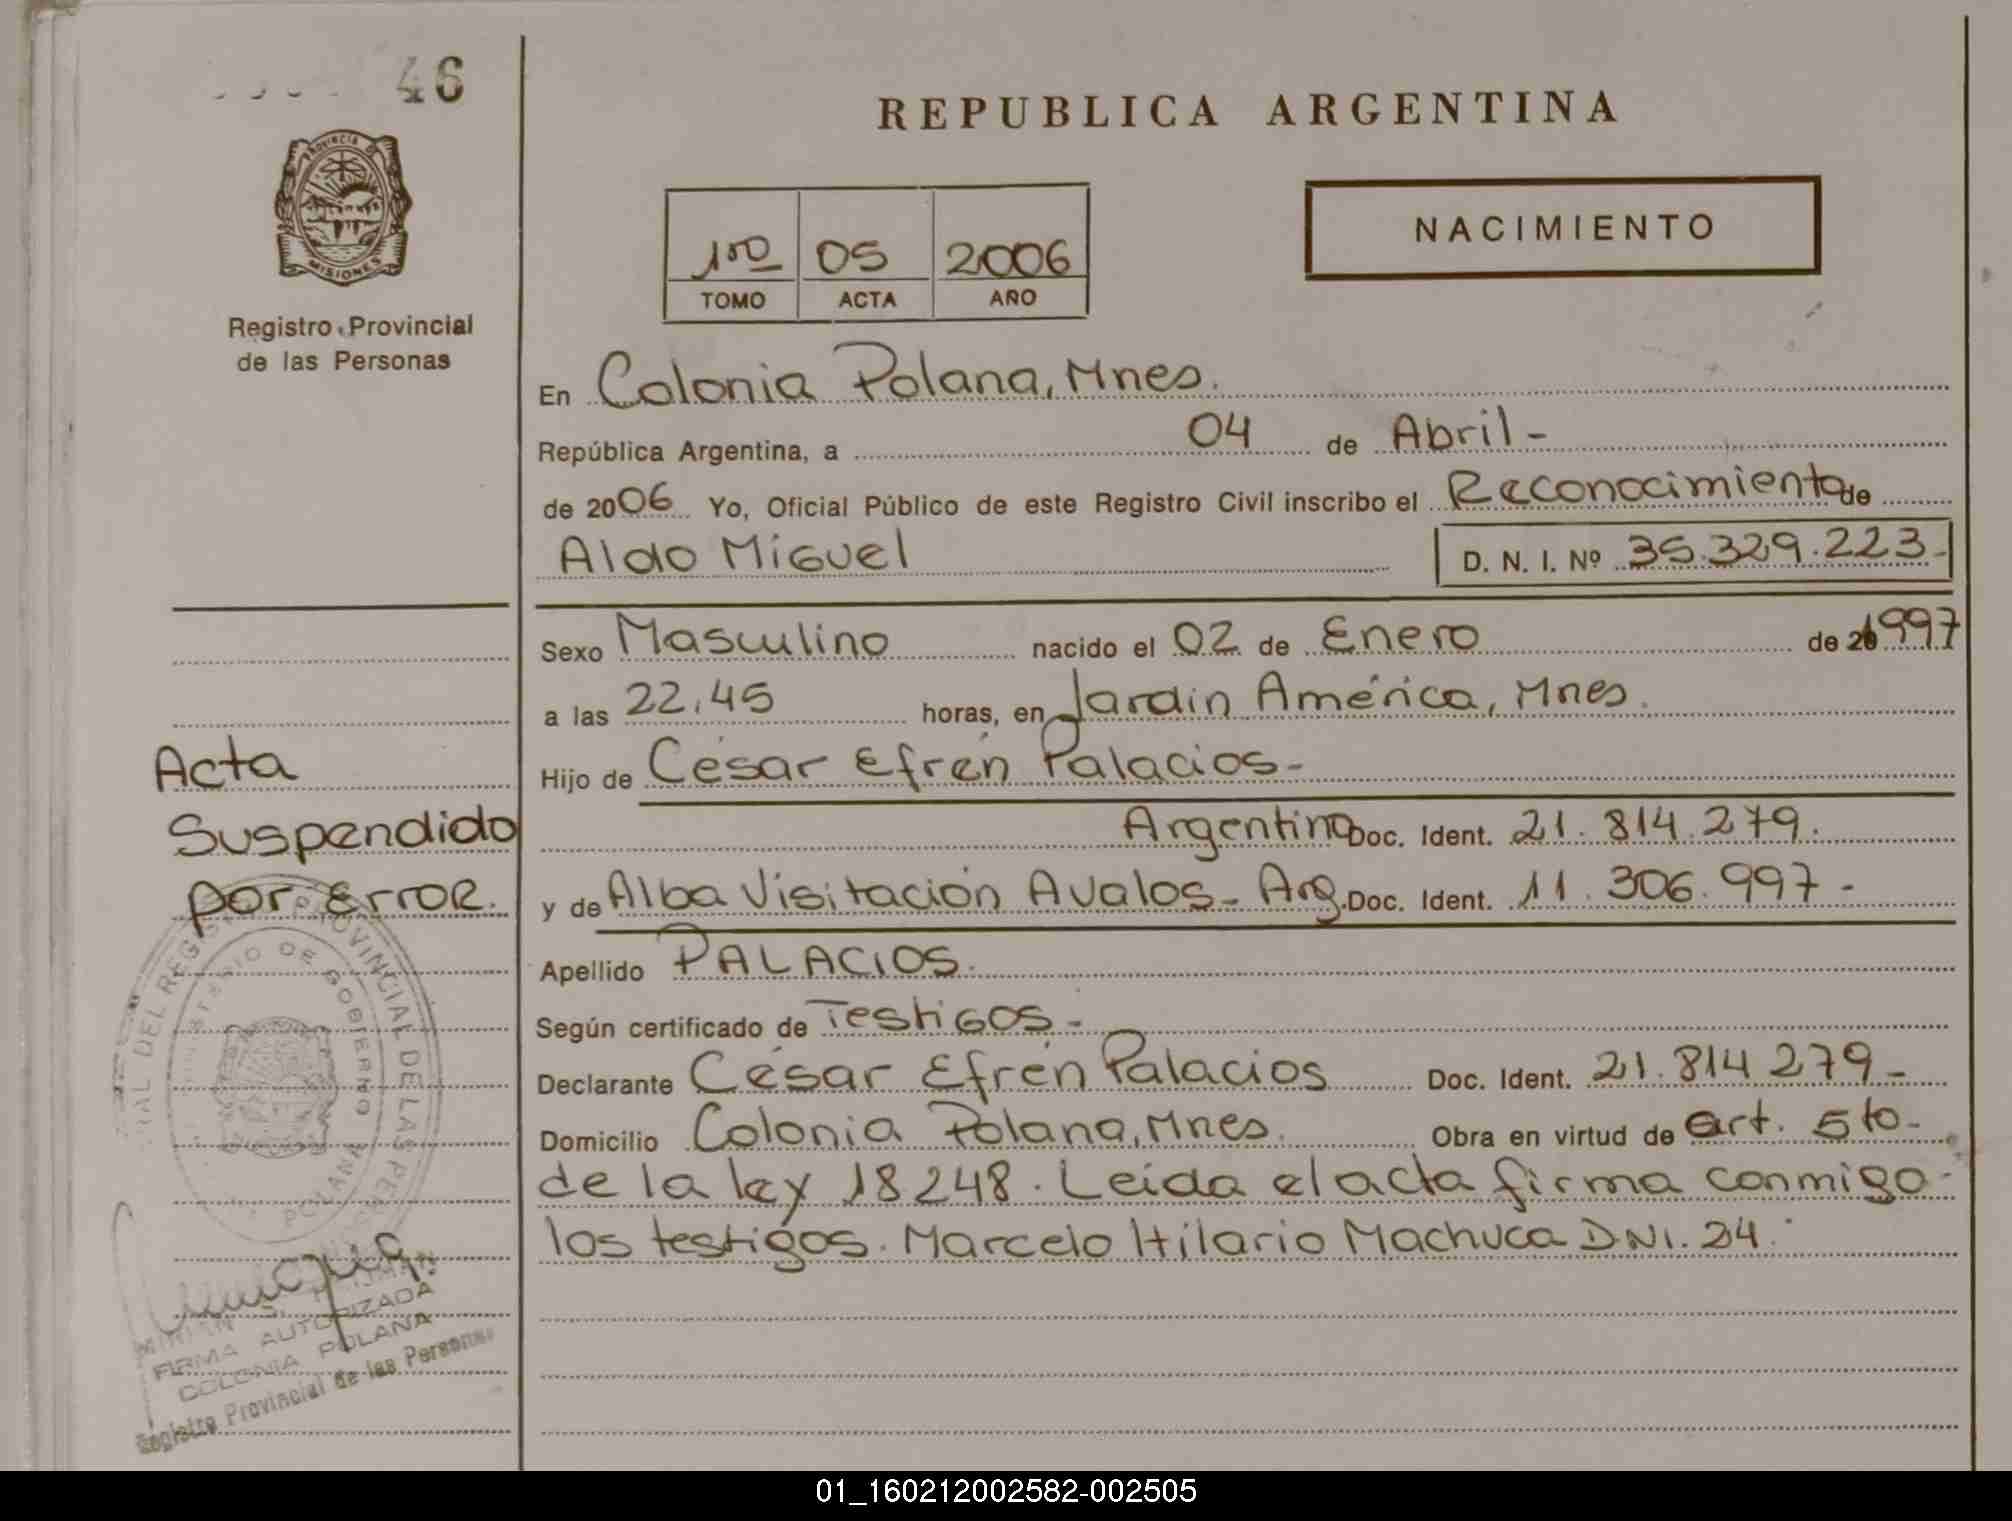 46
PROVINCIA DE
MISIONES
Registro Provincial
de las Personas
REPUBLICA ARGENTINA
1ro 05 2006
TOMO ACTA AÑO
NACIMIENTO
En Colonia Polana, Mnes.
República Argentina, a 04 de Abril -
de 2006 Yo, Oficial Público de este Registro Civil inscribo el Reconocimiento de
Aldo Miguel D. N. I. Nº 35.329.223-
Sexo Masculino nacido el 02 de Enero de 1997
a las 22,45 horas, en Jardín América, Mnes.
Hijo de César Efrén Palacios-
Argentino Doc. Ident. 21.814.279.
y de Alba Visitación Avalos- Arg. Doc. Ident. 11.306.997-
Apellido PALACIOS.
Según certificado de Testigos-
Declarante César Efrén Palacios Doc. Ident. 21.814 279-
Domicilio Colonia Polana, Mnes. Obra en virtud de art. 5to-
de la ley 18248. Leída el acta firma conmigo-
los testigos. Marcelo Hilario Machuca DNI. 24.
Acta
Suspendido
por Error.
DEL REGISTRO PROVINCIAL DE LAS PERSONAS
MINISTERIO DE GOBIERNO
POLANA
FIRMA AUTORIZADA
COLONIA POLANA
Registro Provincial de las Personas
01_160212002582-002505